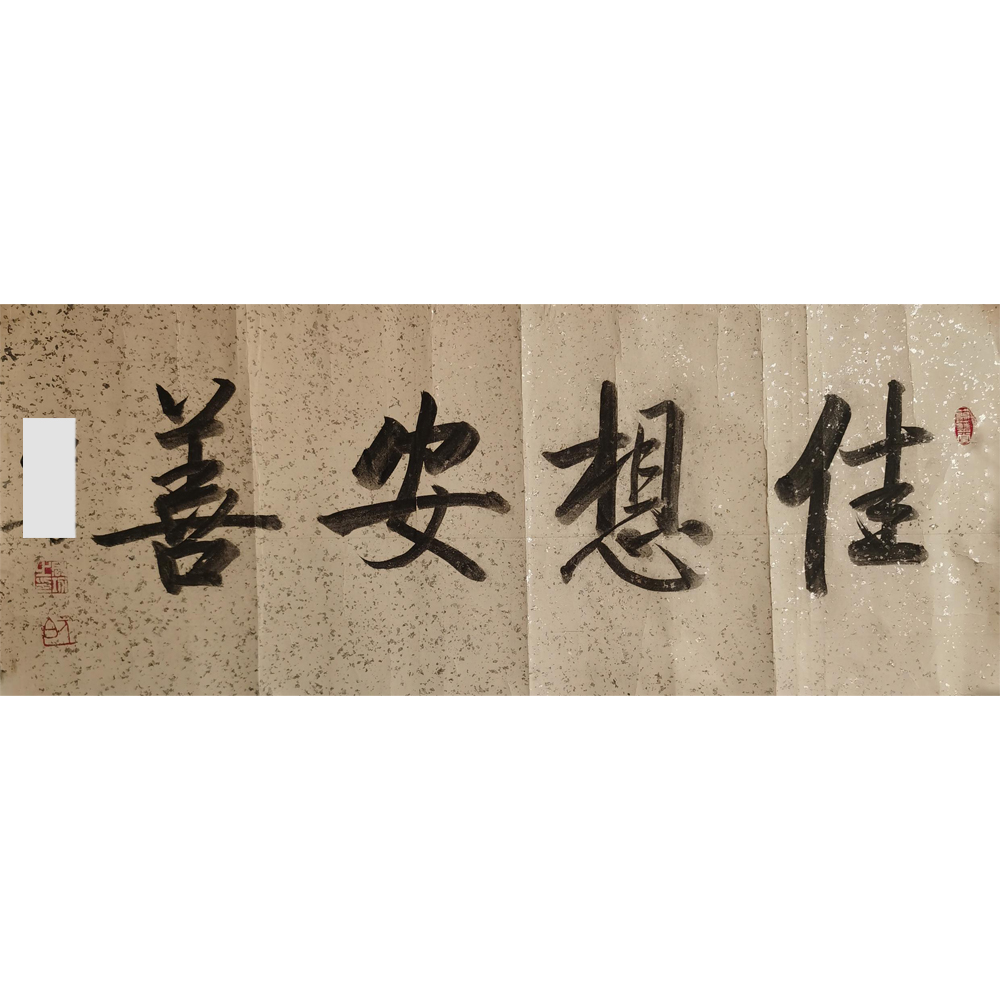 佳想安善